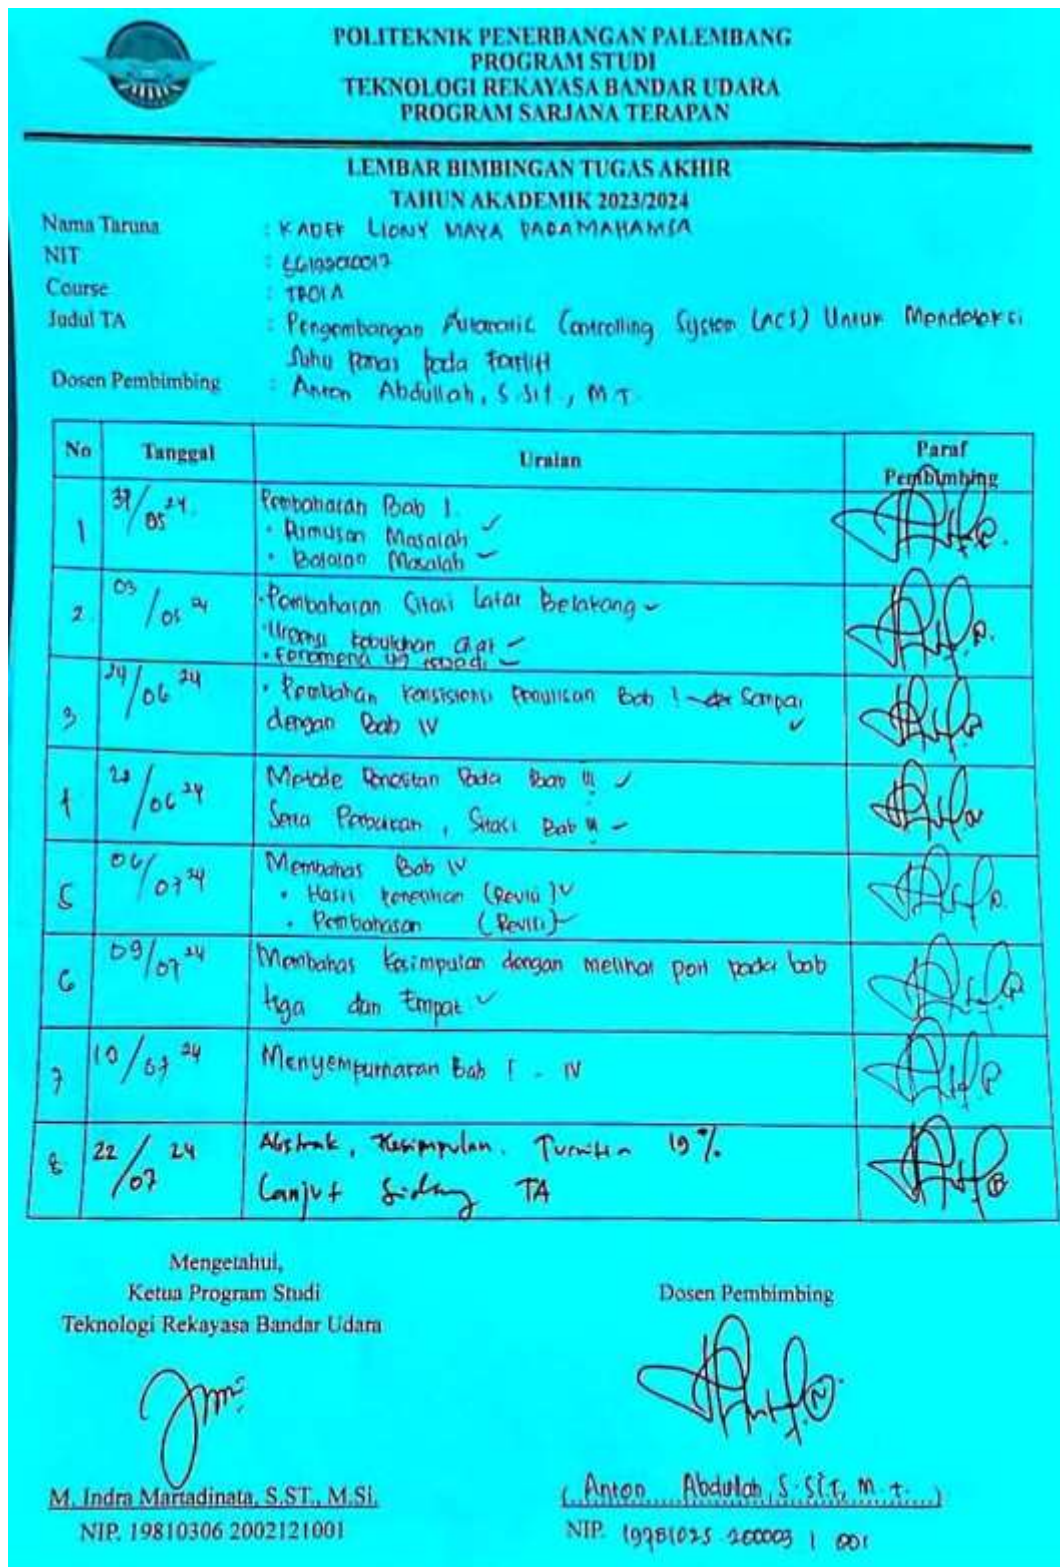 POLITEKNIK PENERBANGAN PALEMBANG
PROGRAM STUDI
TEKNOLOGI REKAYASA BANDAR UDARA
PROGRAM SARJANA TERAPAN
LEMBAR BIMBINGAN TUGAS AKHIR
TAHUN AKADEMIK 2023/2024
Nama Taruna : KADEK LIONY MAYA
NIT :
Course : TRBU A
Judul TA : Pengembangan Automatic Controlling System (ACS) Untuk Mendeteksi
Suhu Panas pada Forklift
Dosen Pembimbing : Anton Abdullah, S.SiT., M.T.
No Tanggal Uraian Paraf
Pembimbing
1 /05 24. Pembahasan Bab I.
• Rumusan Masalah ✓
• Batasan Masalah ✓
2 03/05 24 • Pembahasan Citasi Latar Belakang ✓
• Urgensi kebutuhan alat ✓
• Fenomena yg terjadi ✓
3 24/06 24 • konsistensi Penulisan Bab I Sampai
dengan Bab IV ✓
4 /06 24 Metode Penelitian Pada Bab III ✓
Serta , Sitasi Bab ✓
5 06/07 24 Membahas Bab IV
• Hasil Penelitian (Revisi) ✓
• Pembahasan (Revisi) ✓
6 09/07 24 Membahas kesimpulan dengan melihat poin pada bab
tiga dan Empat ✓
7 10/07 24 Menyempurnakan Bab I - IV
8 22/07 24 Abstrak, Kesimpulan. Turnitin 19%
Lanjut Sidang TA
Mengetahui,
Ketua Program Studi
Teknologi Rekayasa Bandar Udara
Dosen Pembimbing
M. Indra Martadinata, S.ST., M.Si.
NIP. 19810306 2002121001
( Anton Abdullah, S.SiT, M.T. )
NIP. 19781025 200003 1 001